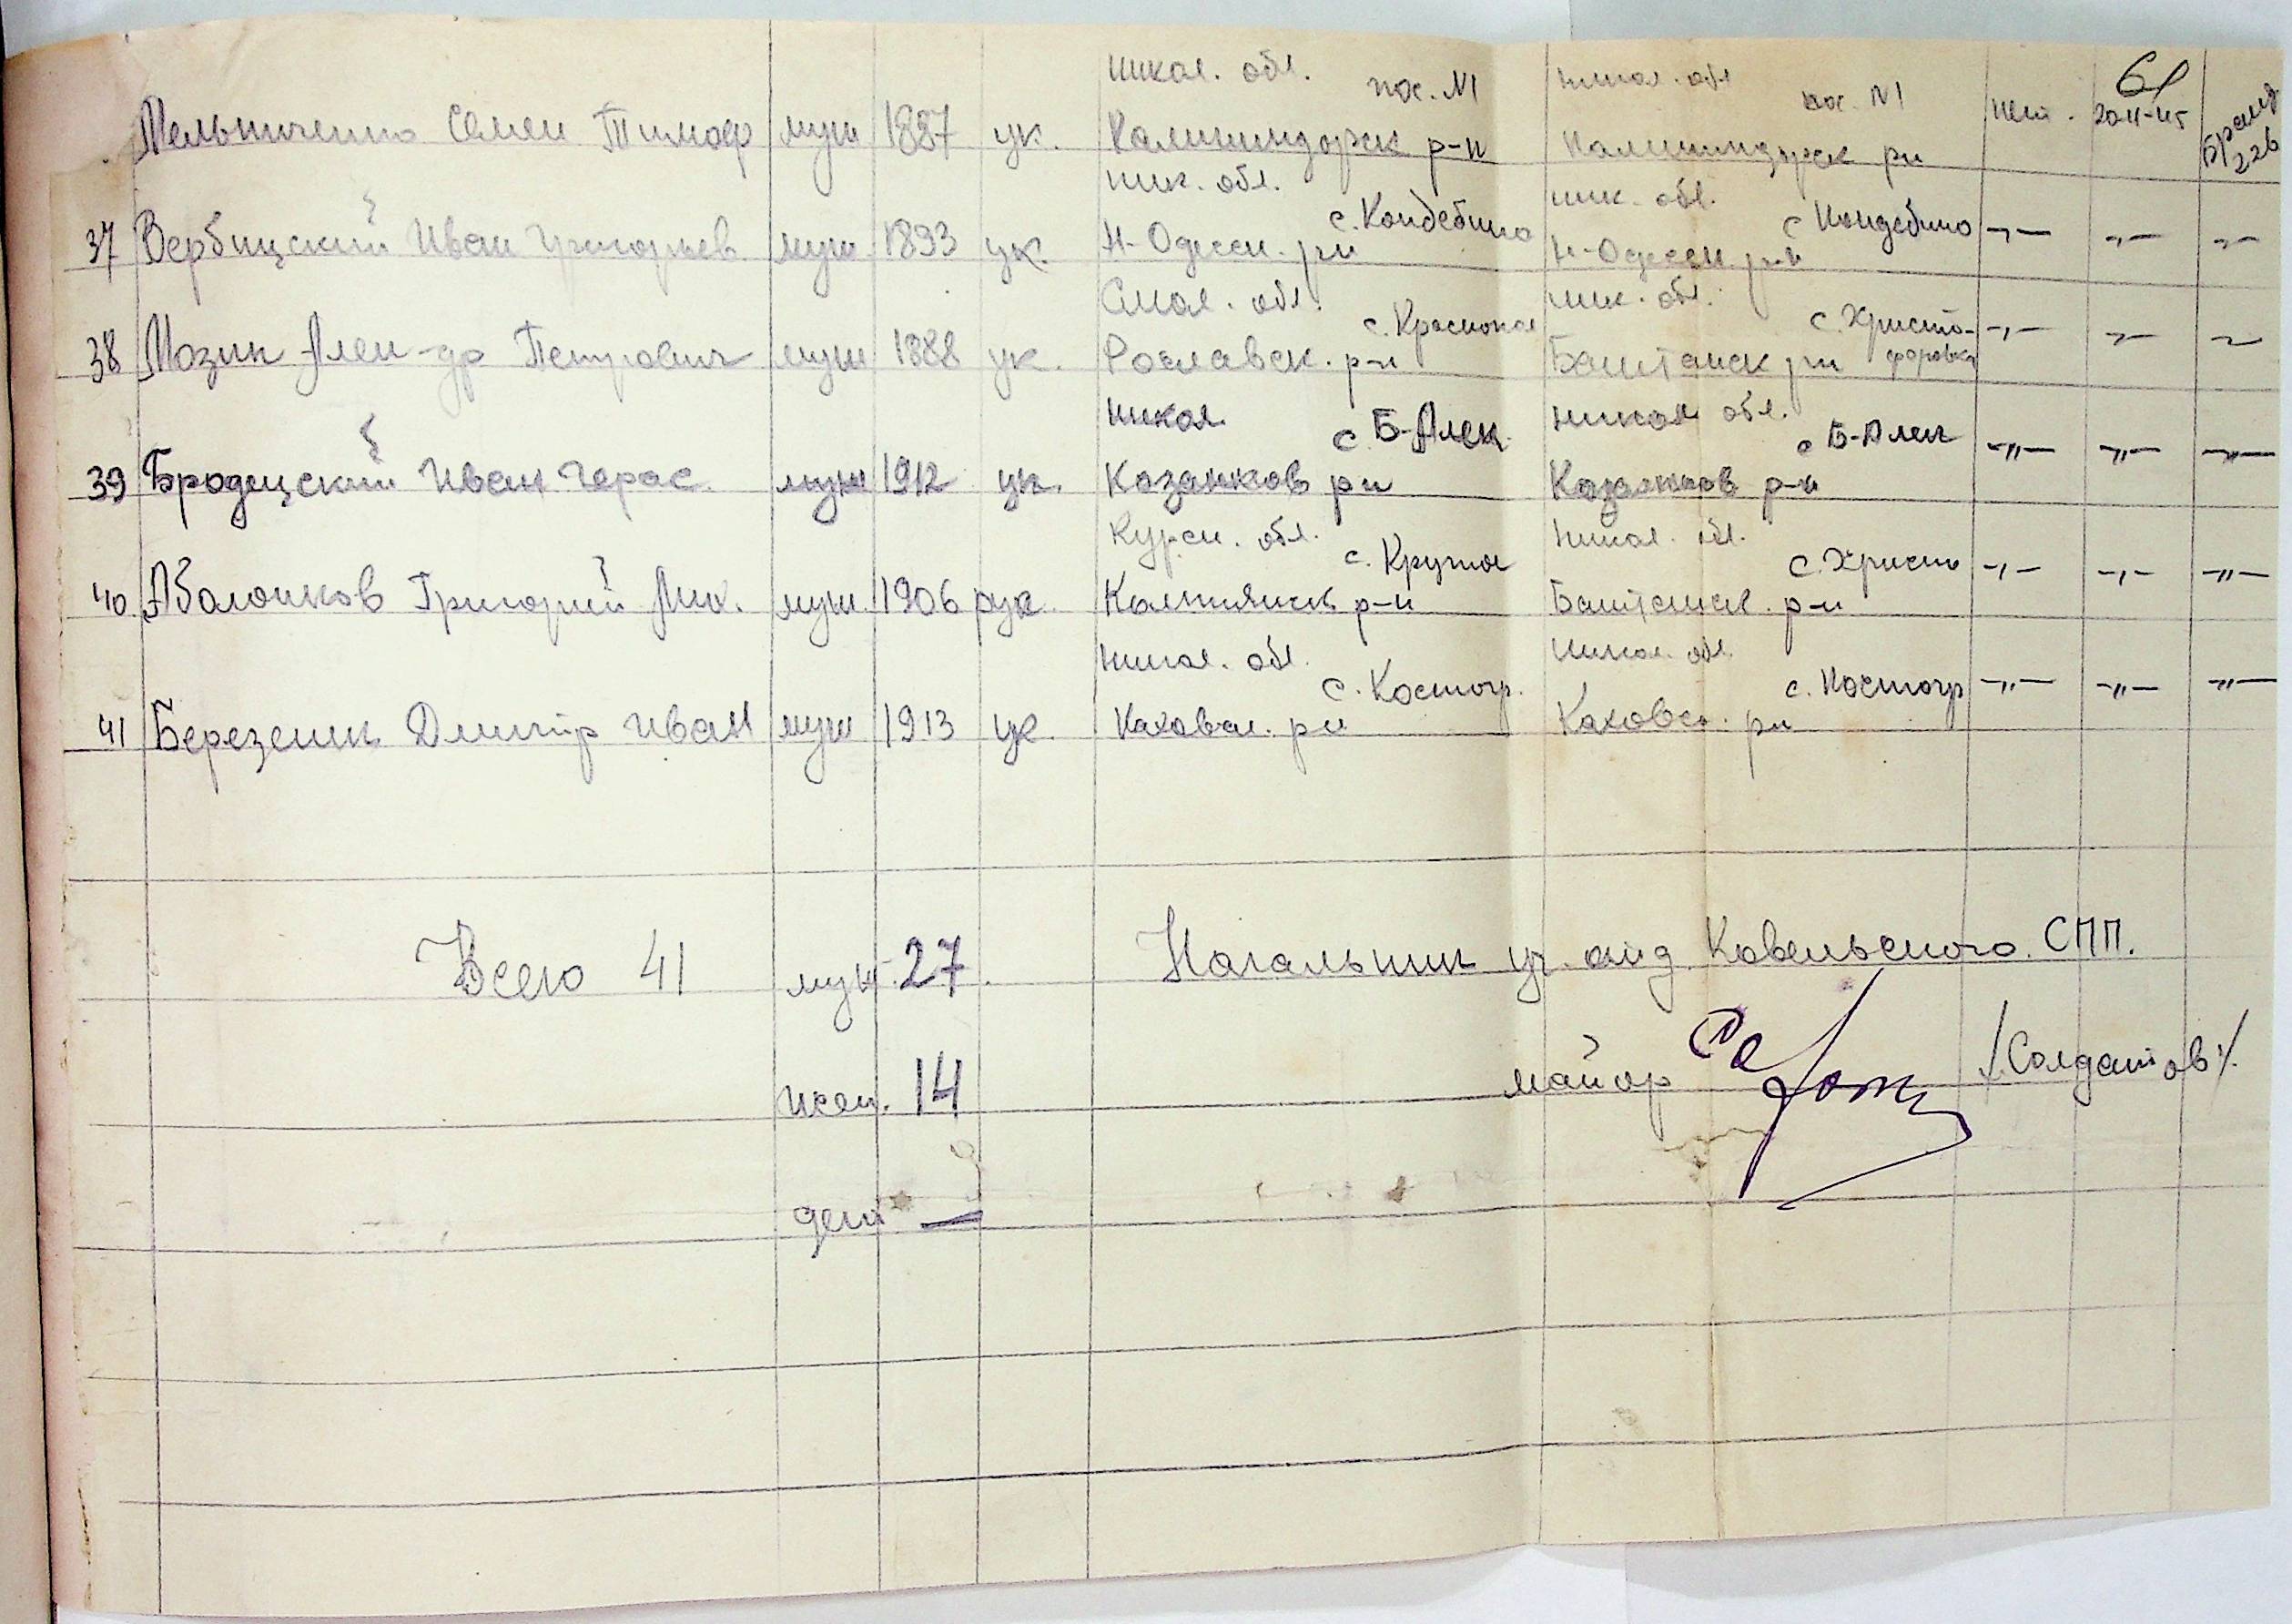 61
Никол. обл. пос. N1 Никол. обл пос. N1
Мельниченко Семен Тимоф муж 1887 ук. Калининдорск р-н Калининдорск рн нет. 20-11-45
ник. обл. с. Кондебино ник. обл. с Кондебино
37 Вербицский Иван Григорьев муж 1893 ук. Н-Одесск. рн Н-Одесск. р-н -„- -„- -„-
Смол. обл. ник. обл. с. Христо-
38 Мозин Алек-др Петрович муж 1888 ук. Рославск. р-н Баштанск рн форовка -„- -„- -„-
Никол. с Б-Алек. Никол обл. с Б-Алек
39 Бродецский Иван Герас. муж 1912 ук. Казанков рн Казанков р-н -„- -„- -„-
Курск. обл. с. Круглое Никол. обл. с. Христо
40. Григорий Мих. муж. 1906 рус р-н Баштанск. р-н -„- -„- -„-
Никол. обл. с. Костогр. Никол. обл. с. Костогр
41 Березеник Дмитр Иван муж 1913 ук. Каховск. рн Каховск. рн -„- -„- -„-
Всего 41 муж. 27. Начальник уч. отд. Ковельского. СПП.
майор /Солдатов/.
жен. 14
дет —